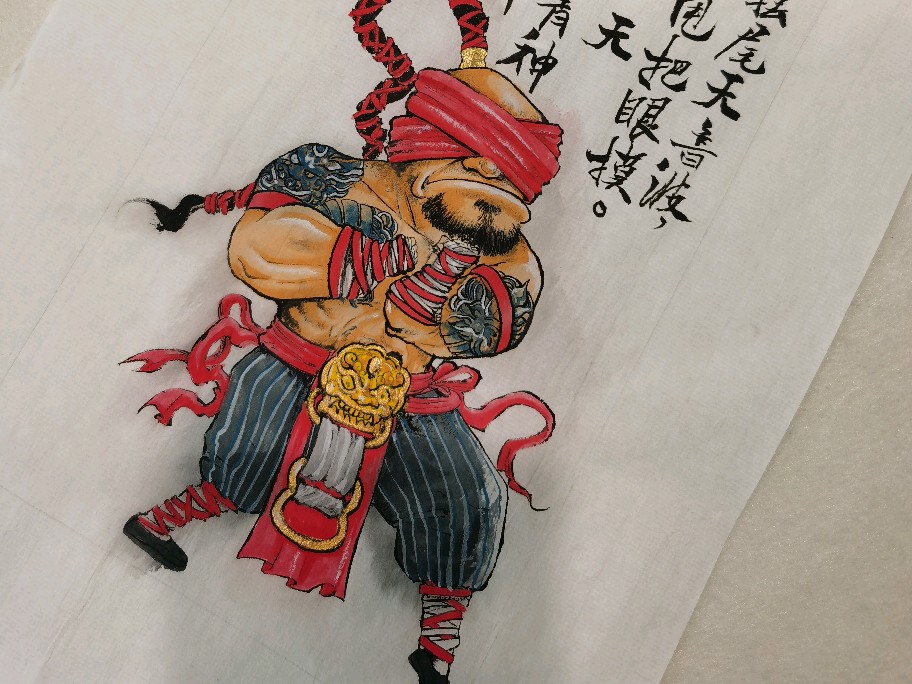 尾天音波，
把眼摸。
天
神